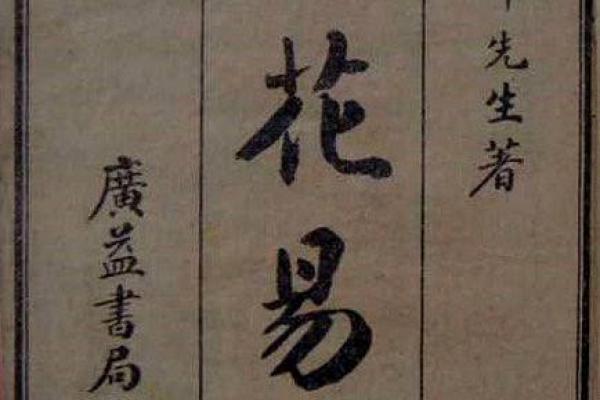 先生著
花易
廣益書局